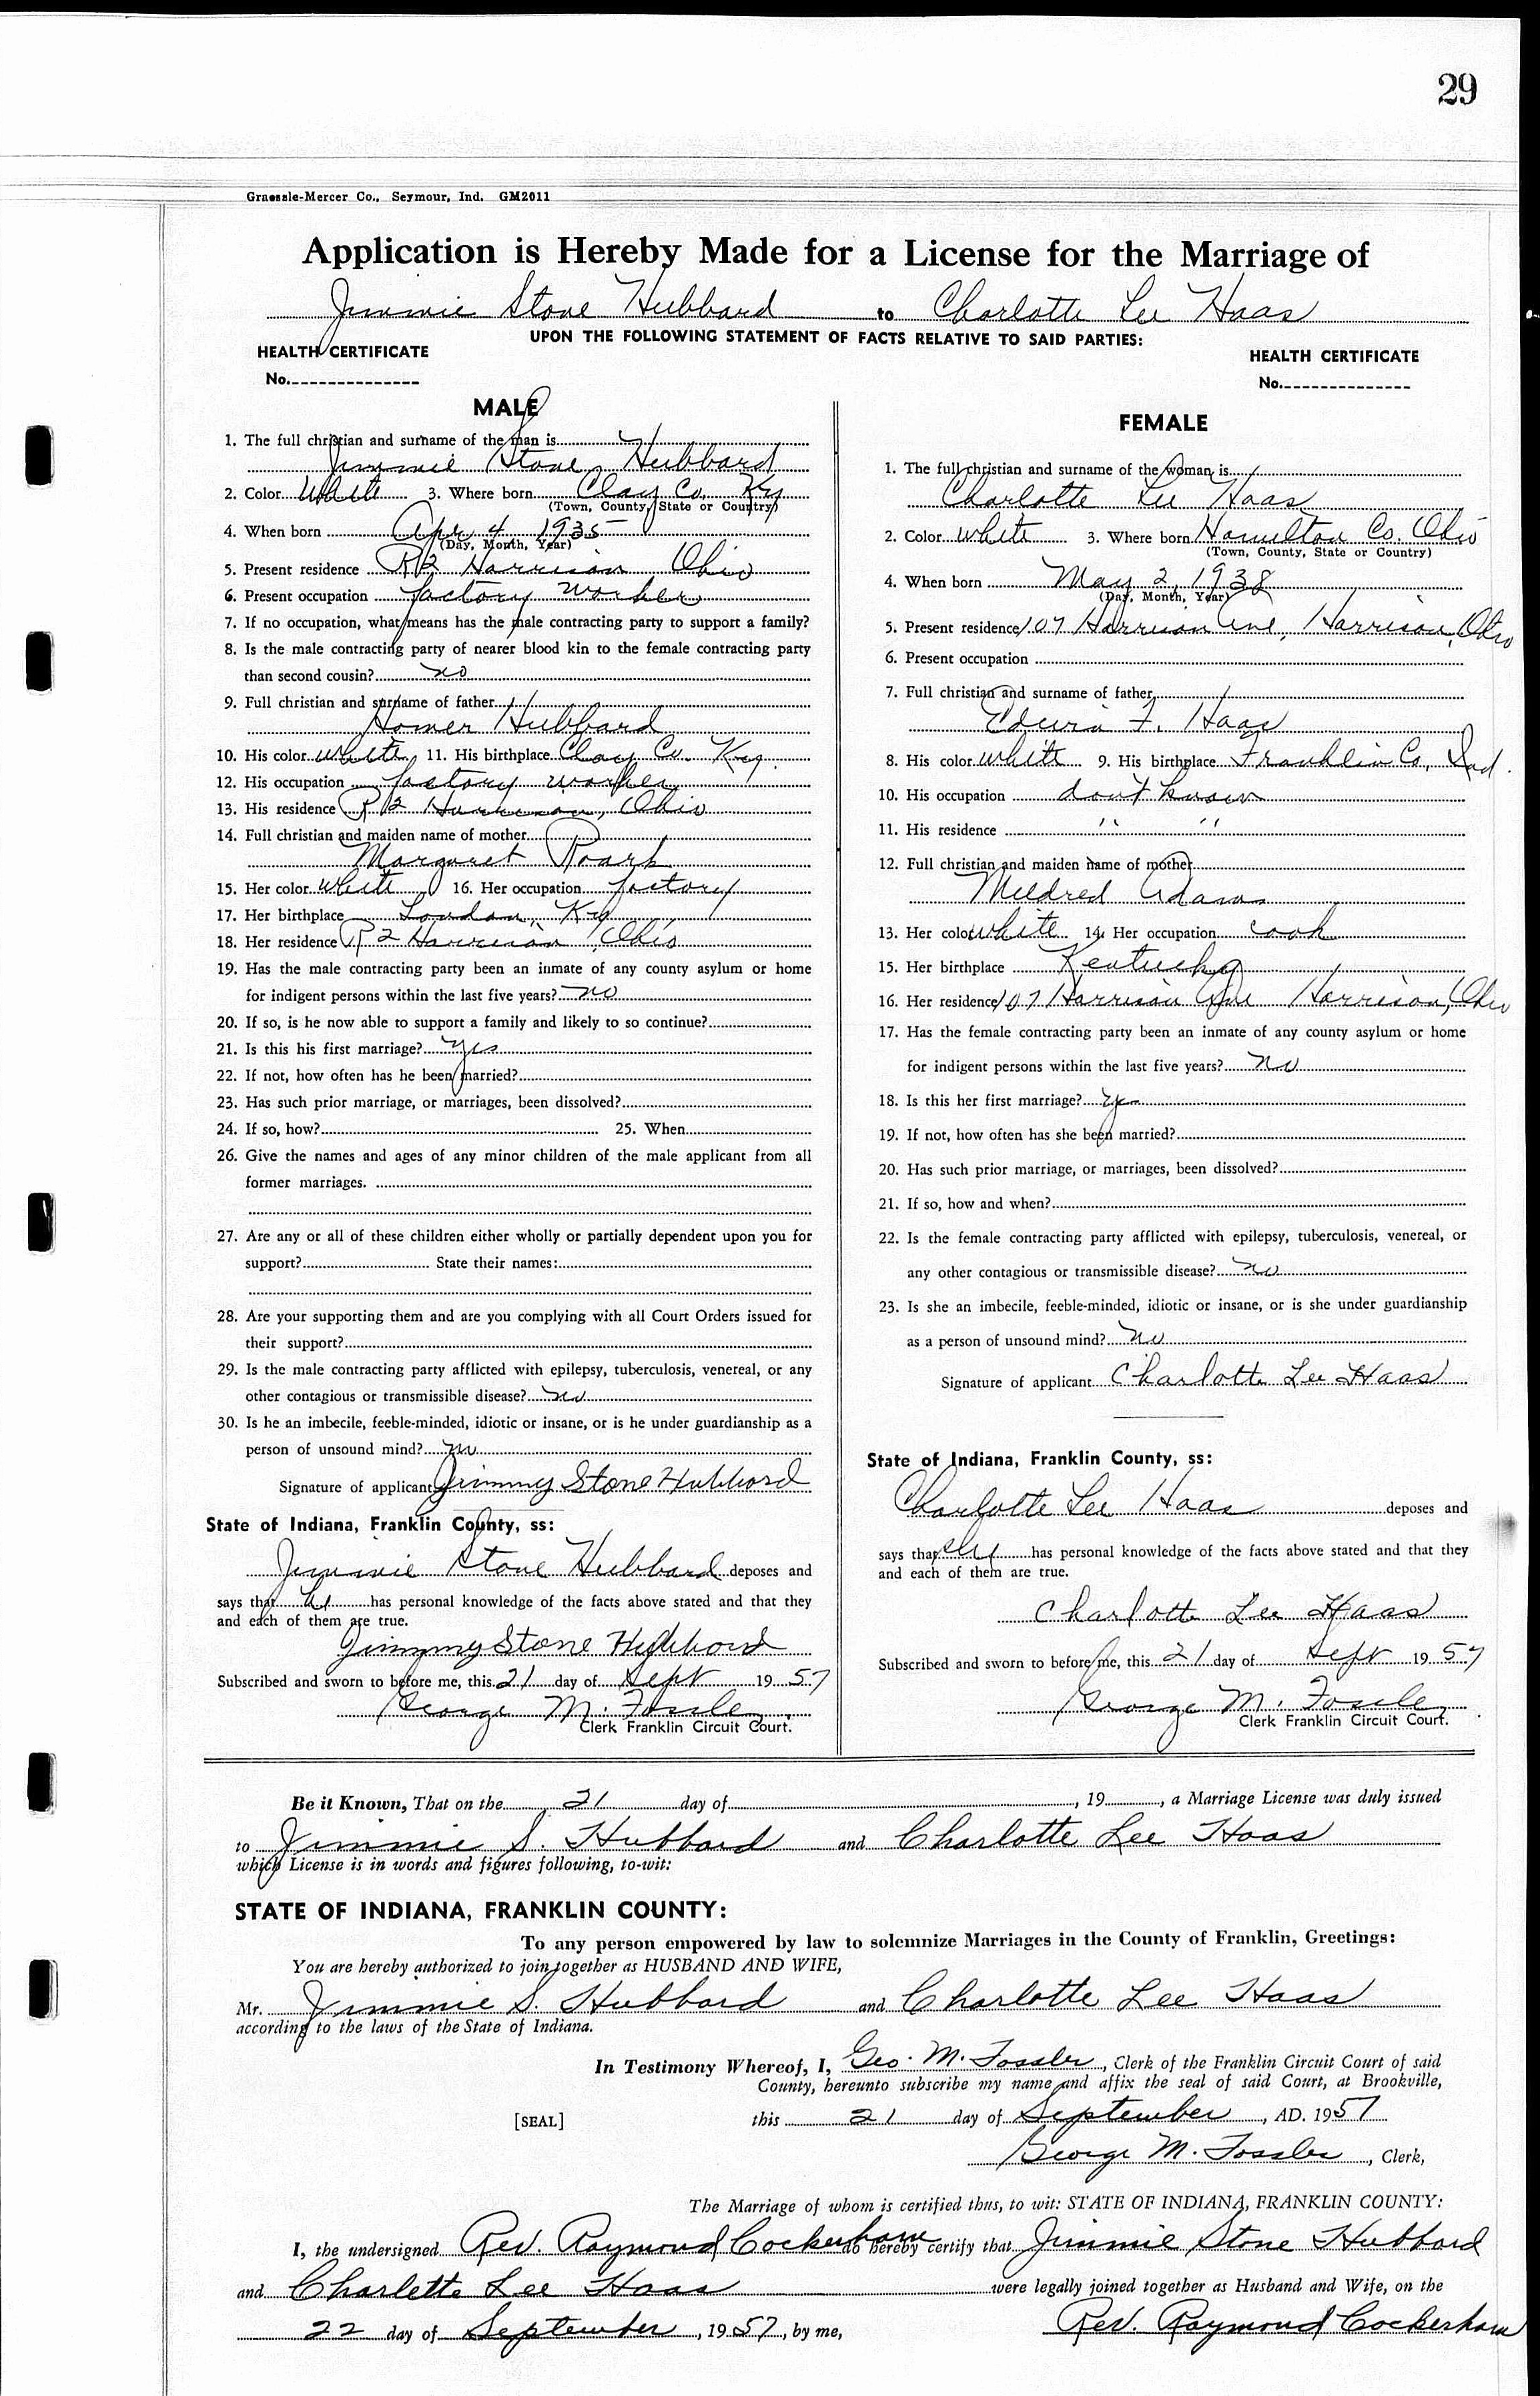 29
Graessle-Mercer Co., Seymour, Ind. GM2011
Application is Hereby Made for a License for the Marriage of
Jimmie Stone Hubbard to Charlotte Lee Haas
UPON THE FOLLOWING STATEMENT OF FACTS RELATIVE TO SAID PARTIES:
HEALTH CERTIFICATE
No.
HEALTH CERTIFICATE
No.
MALE
1. The full christian and surname of the man is
Jimmie Stone Hubbard
2. Color White 3. Where born Clay Co. Ky
(Town, County, State or Country)
4. When born Apr 4 1935
(Day, Month, Year)
5. Present residence R2 Harrison Ohio
6. Present occupation factory worker
7. If no occupation, what means has the male contracting party to support a family?
8. Is the male contracting party of nearer blood kin to the female contracting party
than second cousin? no
9. Full christian and surname of father
Homer Hubbard
10. His color white 11. His birthplace Clay Co. Ky.
12. His occupation factory worker
13. His residence R2 Harrison, Ohio
14. Full christian and maiden name of mother
Margaret Roark
15. Her color white 16. Her occupation factory
17. Her birthplace London, Ky
18. Her residence R2 Harrison, Ohio
19. Has the male contracting party been an inmate of any county asylum or home
for indigent persons within the last five years? no
20. If so, is he now able to support a family and likely to so continue?
21. Is this his first marriage? yes
22. If not, how often has he been married?
23. Has such prior marriage, or marriages, been dissolved?
24. If so, how? 25. When
26. Give the names and ages of any minor children of the male applicant from all
former marriages.
27. Are any or all of these children either wholly or partially dependent upon you for
support? State their names:
28. Are your supporting them and are you complying with all Court Orders issued for
their support?
29. Is the male contracting party afflicted with epilepsy, tuberculosis, venereal, or any
other contagious or transmissible disease? no
30. Is he an imbecile, feeble-minded, idiotic or insane, or is he under guardianship as a
person of unsound mind? no
Signature of applicant Jimmy Stone Hubbard
State of Indiana, Franklin County, ss:
Jimmie Stone Hubbard deposes and
says that he has personal knowledge of the facts above stated and that they
and each of them are true.
Jimmy Stone Hubbard
Subscribed and sworn to before me, this 21 day of Sept 19 57
George M. Fossler
Clerk Franklin Circuit Court.
FEMALE
1. The full christian and surname of the woman is
Charlotte Lee Haas
2. Color white 3. Where born Hamilton Co. Ohio
(Town, County, State or Country)
4. When born May 2, 1938
(Day, Month, Year)
5. Present residence 107 Harrison Ave, Harrison, Ohio
6. Present occupation
7. Full christian and surname of father
Edwin F. Haas
8. His color white 9. His birthplace Franklin Co., Ind.
10. His occupation dont know
11. His residence " "
12. Full christian and maiden name of mother
Mildred Adams
13. Her color white 14. Her occupation cook
15. Her birthplace Kentucky
16. Her residence 107 Harrison Ave Harrison, Ohio
17. Has the female contracting party been an inmate of any county asylum or home
for indigent persons within the last five years? no
18. Is this her first marriage? yes
19. If not, how often has she been married?
20. Has such prior marriage, or marriages, been dissolved?
21. If so, how and when?
22. Is the female contracting party afflicted with epilepsy, tuberculosis, venereal, or
any other contagious or transmissible disease? no
23. Is she an imbecile, feeble-minded, idiotic or insane, or is she under guardianship
as a person of unsound mind? no
Signature of applicant Charlotte Lee Haas
State of Indiana, Franklin County, ss:
Charlotte Lee Haas deposes and
says that she has personal knowledge of the facts above stated and that they
and each of them are true.
Charlotte Lee Haas
Subscribed and sworn to before me, this 21 day of Sept 19 57
George M. Fossler
Clerk Franklin Circuit Court.
Be it Known, That on the 21 day of , 19 , a Marriage License was duly issued
to Jimmie S. Hubbard and Charlotte Lee Haas
which License is in words and figures following, to-wit:
STATE OF INDIANA, FRANKLIN COUNTY:
To any person empowered by law to solemnize Marriages in the County of Franklin, Greetings:
You are hereby authorized to join together as HUSBAND AND WIFE,
Mr. Jimmie S. Hubbard and Charlotte Lee Haas
according to the laws of the State of Indiana.
In Testimony Whereof, I, Geo. M. Fossler, Clerk of the Franklin Circuit Court of said
County, hereunto subscribe my name and affix the seal of said Court, at Brookville,
[SEAL] this 21 day of September, AD. 1957
George M. Fossler, Clerk,
The Marriage of whom is certified thus, to wit: STATE OF INDIANA, FRANKLIN COUNTY:
I, the undersigned Rev. Raymond Cockerham do hereby certify that Jimmie Stone Hubbard
and Charlette Lee Haas were legally joined together as Husband and Wife, on the
22 day of September, 1957, by me, Rev. Raymond Cockerham